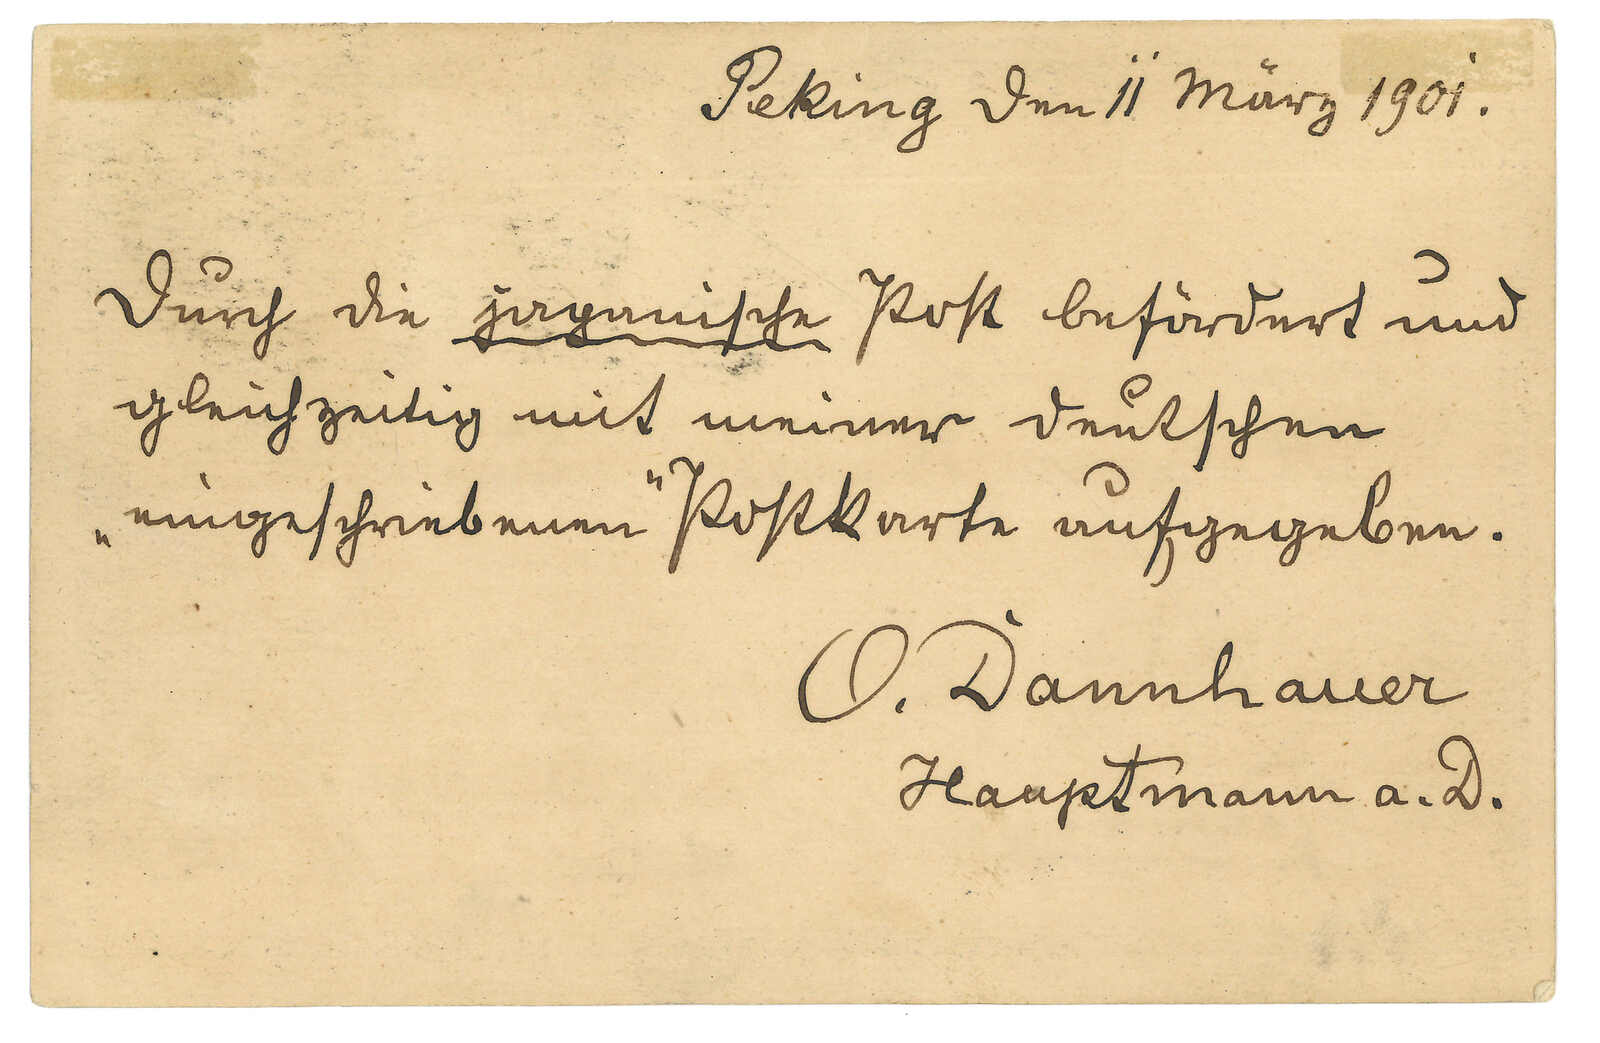 Peking den 11 März 1901.
Durch die japanische Post befördert und
gleichzeitig mit meiner deutschen
„eingeschriebenen" Postkarte aufgegeben.
O. Dannhauer
Hauptmann a. D.